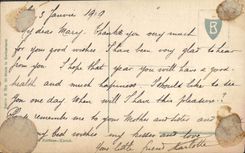 3 Janvier 1910
My dear Mary. Thank you very much
for you good wishes I have been very glad to hear
from you. I hope that year you will have a good
health and much happiness. I should like to see
you one day. When will I have this pleasure.
Please remember me to your Mother and sister and
my best wishes my kisses and love
your little friend